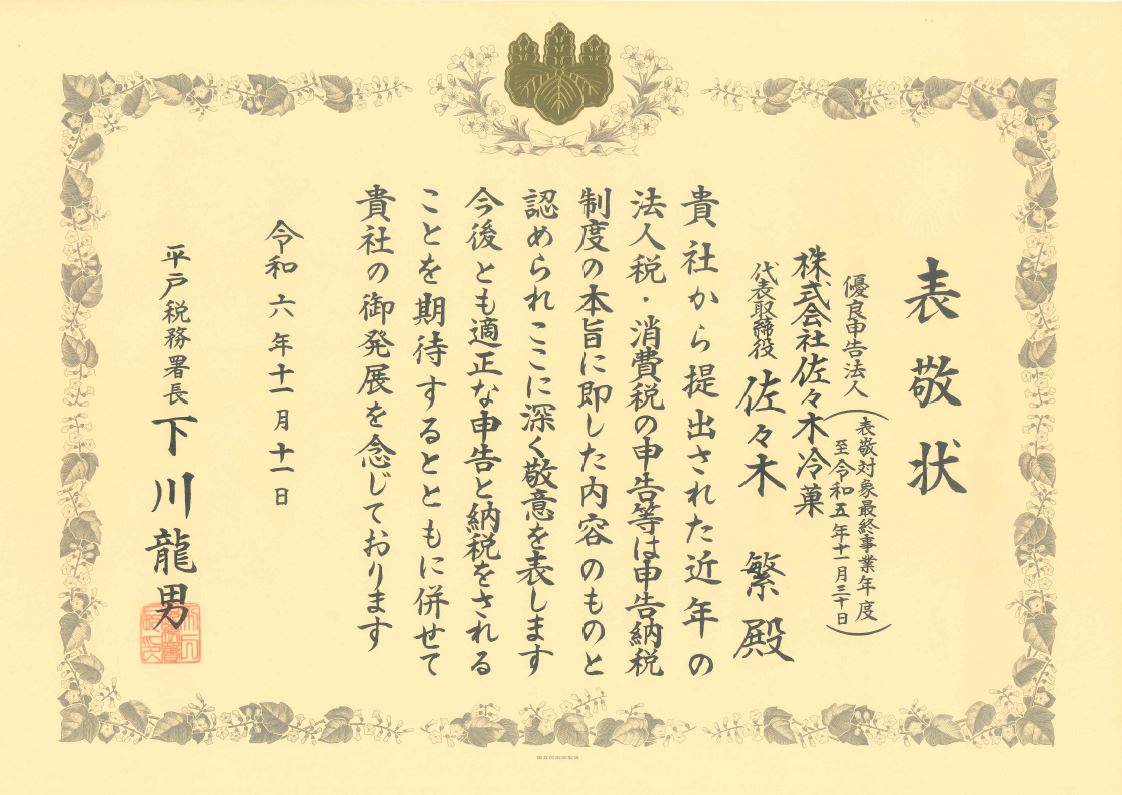 表敬状
優良申告法人
（表敬対象最終事業年度
至令和五年十一月三十日）
株式会社佐々木冷菓
代表取締役 佐々木 繁 殿
貴社から提出された近年の
法人税・消費税の申告等は申告納税
制度の本旨に即した内容のものと
認められここに深く敬意を表します
今後とも適正な申告と納税をされる
ことを期待するとともに併せて
貴社の御発展を念じております
令和六年十一月十一日
平戸税務署長 下川龍男